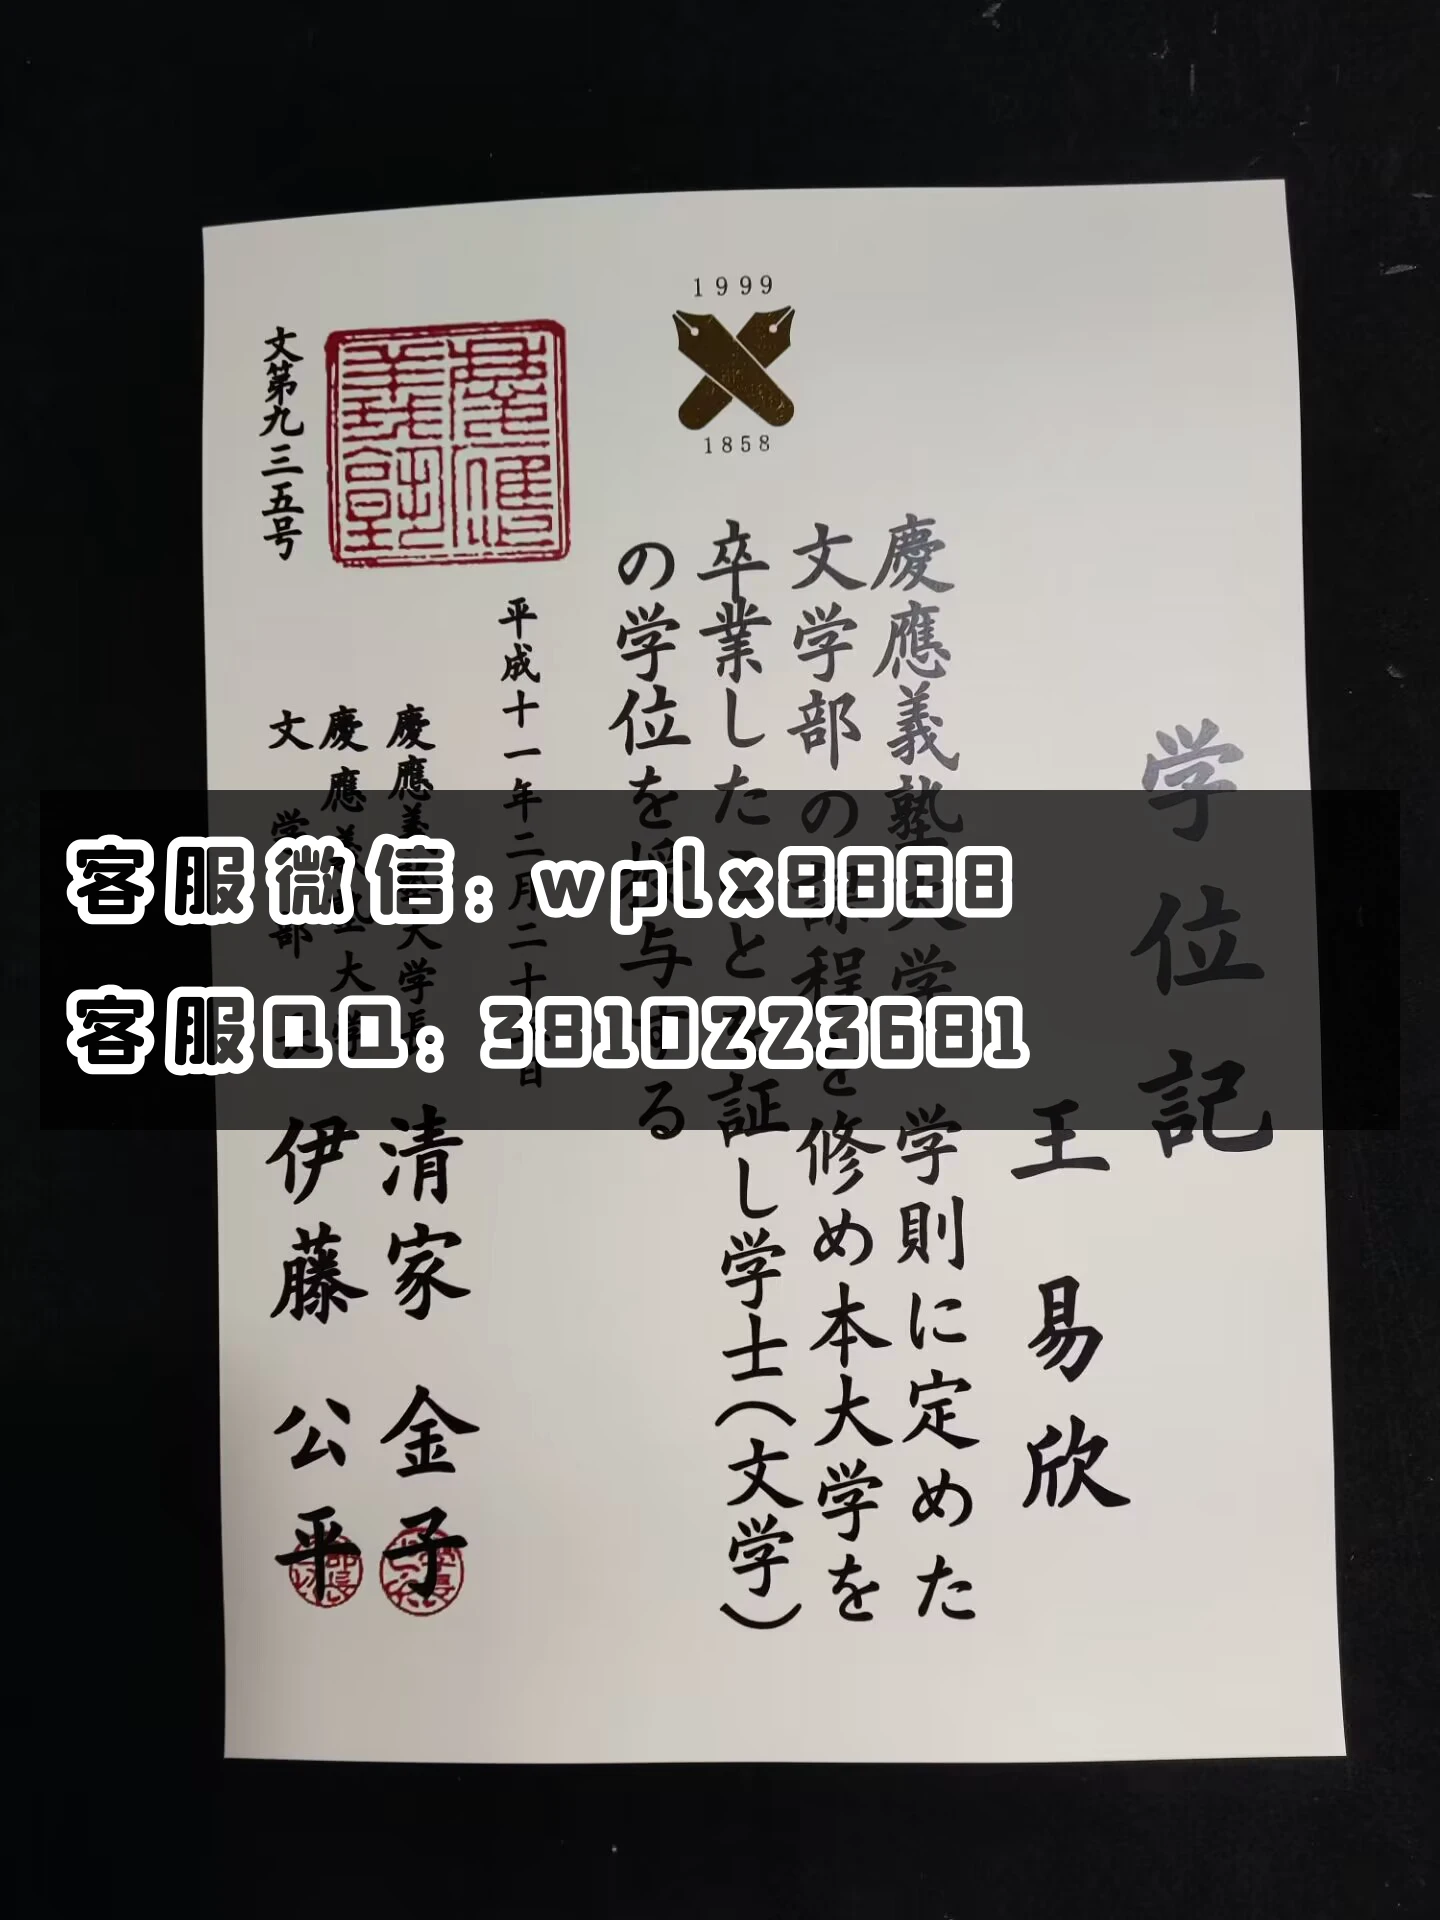 1999
1858
学位記
王易欣
慶應義塾大学学則に定めた
文学部の課程を修め本大学を
卒業したことを証し学士(文学)
の学位を授与する
平成十一年二月二十
日
慶應義塾大学長
清家金子
慶應義塾大学
文学部長
伊藤公平
文第九三五号
慶應義塾
客服微信: wplx8888
客服QQ: 3810223681